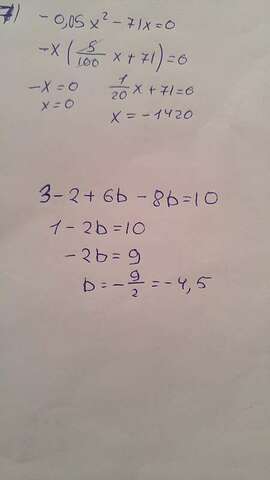 7) -0,05x² - 71x = 0
-x(5/100 x + 71) = 0
-x = 0 1/20 x + 71 = 0
x = 0 x = -1420
3 - 2 + 6b - 8b = 10
1 - 2b = 10
-2b = 9
b = -9/2 = -4,5